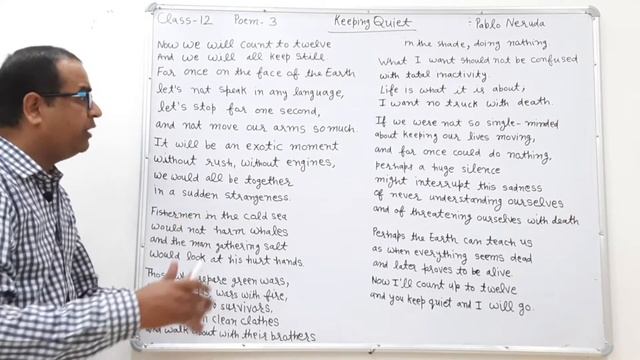 Class-12 Poem-3 Keeping Quiet : Pablo Neruda
Now we will count to twelve
And we will all keep still.
For once on the face of the Earth
let's not speak in any language,
let's stop for one second,
and not move our arms so much.
It will be an exotic moment
without rush, without engines,
we would all be together
in a sudden strangeness.
Fishermen in the cold sea
would not harm whales
and the man gathering salt
would look at his hurt hands.
Those prepare green wars,
wars with fire,
survivors,
clean clothes
and walk about with their brothers
in the shade, doing nothing
What I want should not be confused
with total inactivity.
Life is what it is about,
I want no truck with death.
If we were not so single-minded
about keeping our lives moving,
and for once could do nothing,
perhaps a huge silence
might interrupt this sadness
of never understanding ourselves
and of threatening ourselves with death
Perhaps the Earth can teach us
as when everything seems dead
and later proves to be alive.
Now I'll count up to twelve
and you keep quiet and I will go.